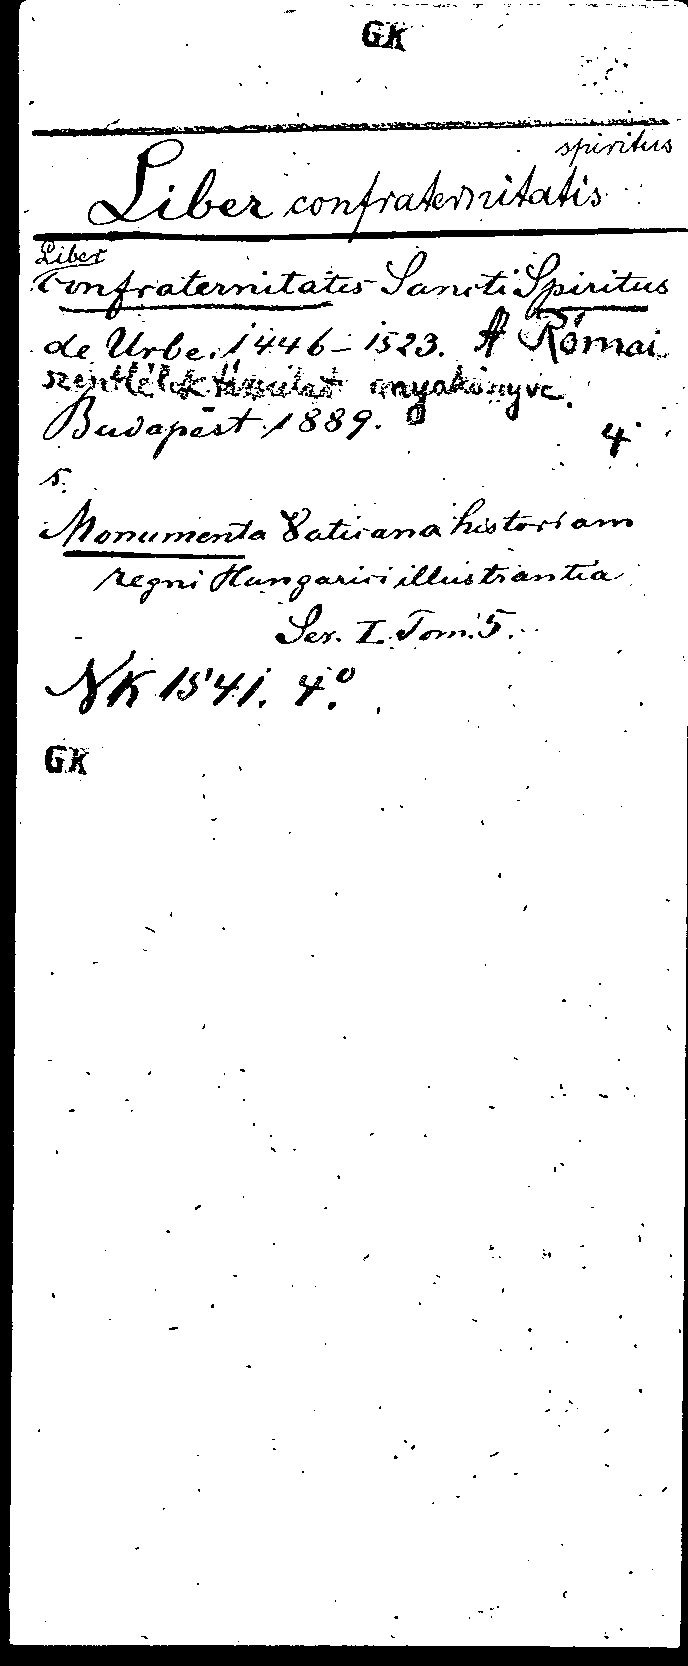 GK
spiritus
Liber confraternitatis
Liber
Confraternitatis Sancti Spiritus
de Urbe. 1446-1523. A Római
szentlélek társulat anyakönyve.
Budapest 1889. 4
5.
Monumenta Vaticana historiam
regni Hungarici illustrantia
Ser. I. Tom. 5.
NK 1541. 4°
GK